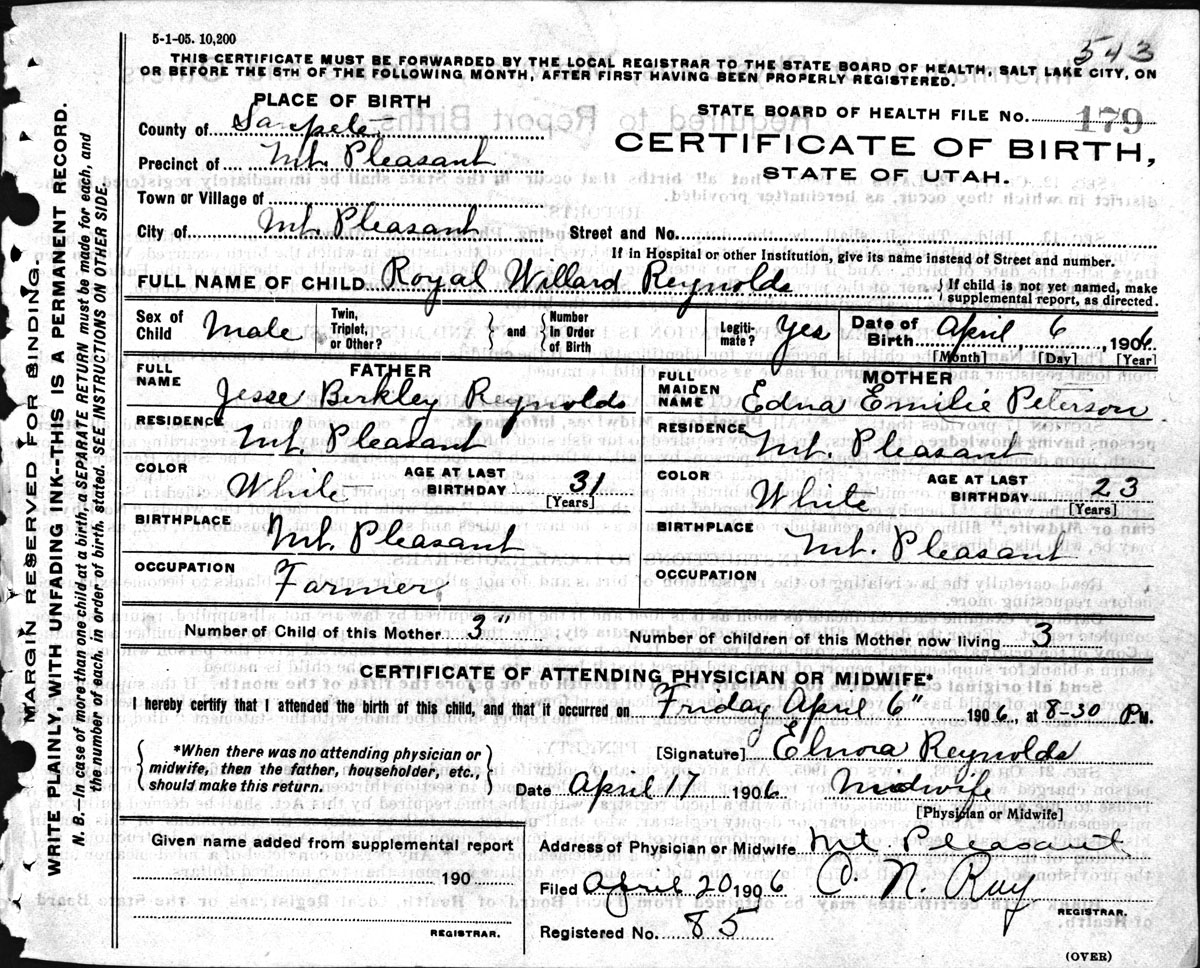 5-1-05. 10,200
543
THIS CERTIFICATE MUST BE FORWARDED BY THE LOCAL REGISTRAR TO THE STATE BOARD OF HEALTH, SALT LAKE CITY, ON
OR BEFORE THE 5TH OF THE FOLLOWING MONTH, AFTER FIRST HAVING BEEN PROPERLY REGISTERED.
PLACE OF BIRTH
STATE BOARD OF HEALTH FILE No. 179
County of Sanpete
CERTIFICATE OF BIRTH,
Precinct of Mt. Pleasant
STATE OF UTAH.
Town or Village of
City of Mt. Pleasant Street and No.
If in Hospital or other Institution, give its name instead of Street and number.
FULL NAME OF CHILD Royal Willard Reynolds { If child is not yet named, make
supplemental report, as directed.
Sex of Child Male Twin, Triplet, or Other? } and { Number in Order of Birth Legiti-mate? Yes Date of Birth April 6, 1906.
[Month] [Day] [Year]
FATHER MOTHER
FULL NAME Jesse Berkley Reynolds FULL MAIDEN NAME Edna Emilie Peterson
RESIDENCE Mt. Pleasant RESIDENCE Mt. Pleasant
COLOR White AGE AT LAST BIRTHDAY 31 [Years] COLOR White AGE AT LAST BIRTHDAY 23 [Years]
BIRTHPLACE Mt. Pleasant BIRTHPLACE Mt. Pleasant
OCCUPATION Farmer OCCUPATION
Number of Child of this Mother 3" Number of children of this Mother now living 3
CERTIFICATE OF ATTENDING PHYSICIAN OR MIDWIFE*
I hereby certify that I attended the birth of this child, and that it occurred on Friday April 6" 1906, at 8-30 P.M.
{ *When there was no attending physician or
midwife, then the father, householder, etc.,
should make this return. }
[Signature] Elnora Reynolds
Date April 17 1906. Midwife
[Physician or Midwife]
Given name added from supplemental report
190
REGISTRAR.
Address of Physician or Midwife Mt Pleasant
Filed April 20 1906 O. N. Ruy
REGISTRAR.
Registered No. 85
(OVER)
MARGIN RESERVED FOR BINDING.
WRITE PLAINLY WITH UNFADING INK--THIS IS A PERMANENT RECORD.
N. B.--In case of more than one child at a birth, a SEPARATE RETURN must be made for each, and
the number of each, in order of birth, stated. SEE INSTRUCTIONS ON OTHER SIDE.